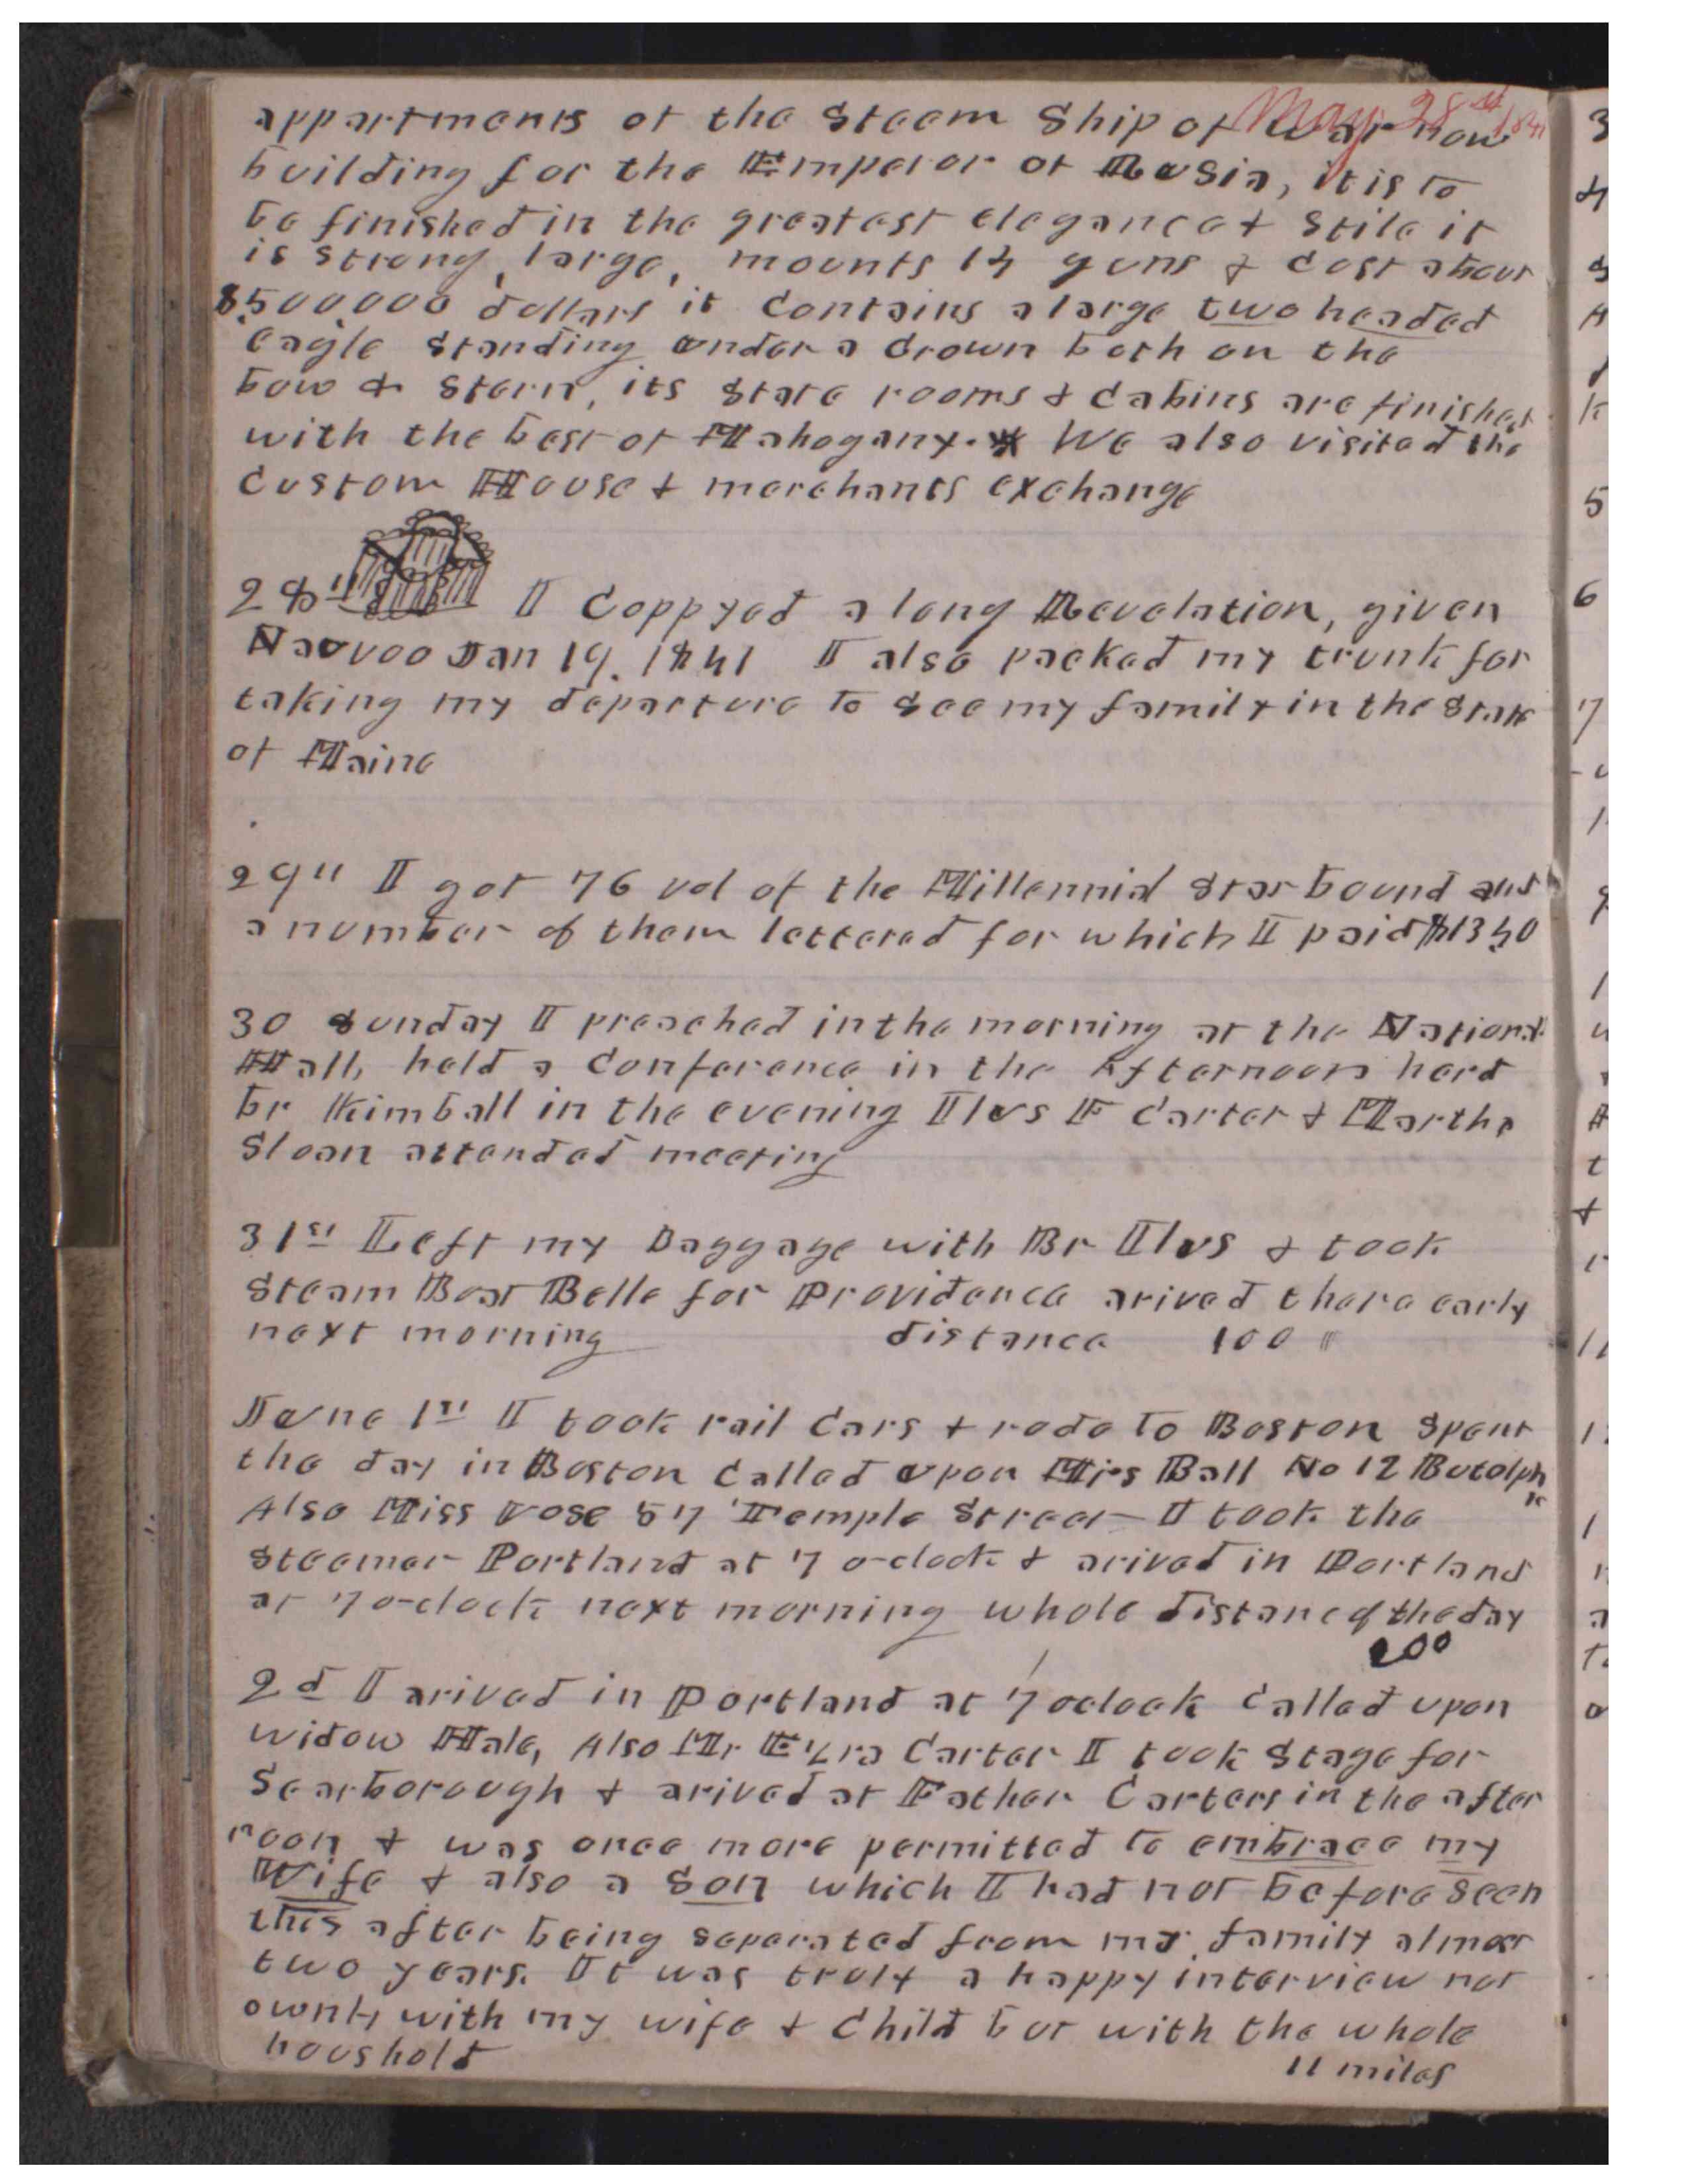 May 28th 1841
appartments of the Steem Ship of War now
building for the Emperor of Rusia, it is to
be finished in the greatest elegance & Stile it
is strong, large, mounts 14 guns & cost about
$500000 dollars it contains a large two headed
eagle standing under a crown both on the
bow & stern, its state rooms & cabins are finished
with the best of Mahogany. We also visited the
custom House & merchants exchange
28th I coppyed a long Revelation, given
Nauvoo Jan 19. 1841 I also packed my trunk for
taking my departure to see my family in the State
of Maine
29" I got 76 vol of the Millennial Star bound and
a number of them lettered for which I paid $13,50
30 Sunday I preached in the morning at the National
Hall, held a conference in the Afternoon herd
br Kimball in the evening Ilus F Carter & Martha
Sloan attended meeting
31st Left my Baggage with Br Ilus & took
Steam Boat Belle for Providence arived there early
next morning distance 100 m
June 1st I took rail cars & rode to Boston spent
the day in Boston called upon Mrs Ball No 12 Butolph
Also Miss Vose 57 Temple Street I took the
steemer Portland at 7 o-clock & arived in Portland
at 7 o-clock next morning whole distance of the day
200
2d I arived in Portland at 7 oclock called upon
widow Hale, Also Mr Ezra Carter I took Stage for
Scarborough & arived at Father Carters in the after
noon & was once more permitted to embrace my
Wife & also a Son which I had not before seen
this after being separated from my family almost
two years. It was truly a happy interview not
ownly with my wife & child but with the whole
houshold 11 miles